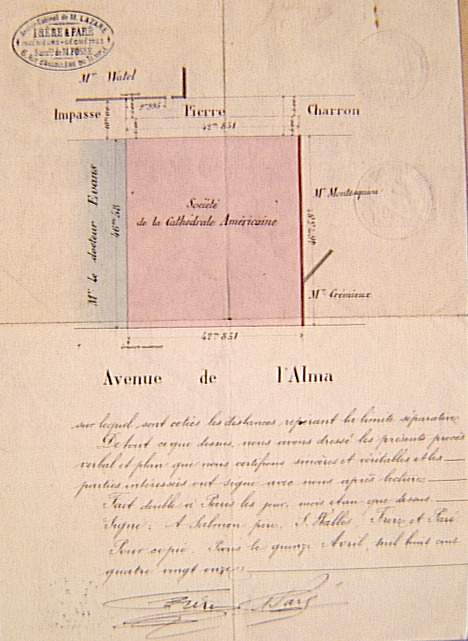 Ancien Cabinet de M. LAZARE
FRÈRE & PARÉ
INGÉNIEURS-GÉOMÈTRES
Mr Watel
Impasse Pierre Charron
42m 851
Mr le docteur Evans
46m 58
Société
de la Cathédrale Américaine
46m 58
Mr Montesquiou
Mr Crémieux
42m 851
Avenue de l'Alma
sur lequel sont cotées les distances repérant la limite séparative
De tout ce que dessus, nous avons dressé les présents procès
verbal et plan que nous certifions sincères et véritables et les
parties intéressées ont signé avec nous après lecture
Fait double à Paris les jour, mois et an que dessus
Signé: A Salmon père, Frère et Paré
Pour copie, Paris le quinze Avril, mil huit cent
quatre vingt onze
Frère Paré